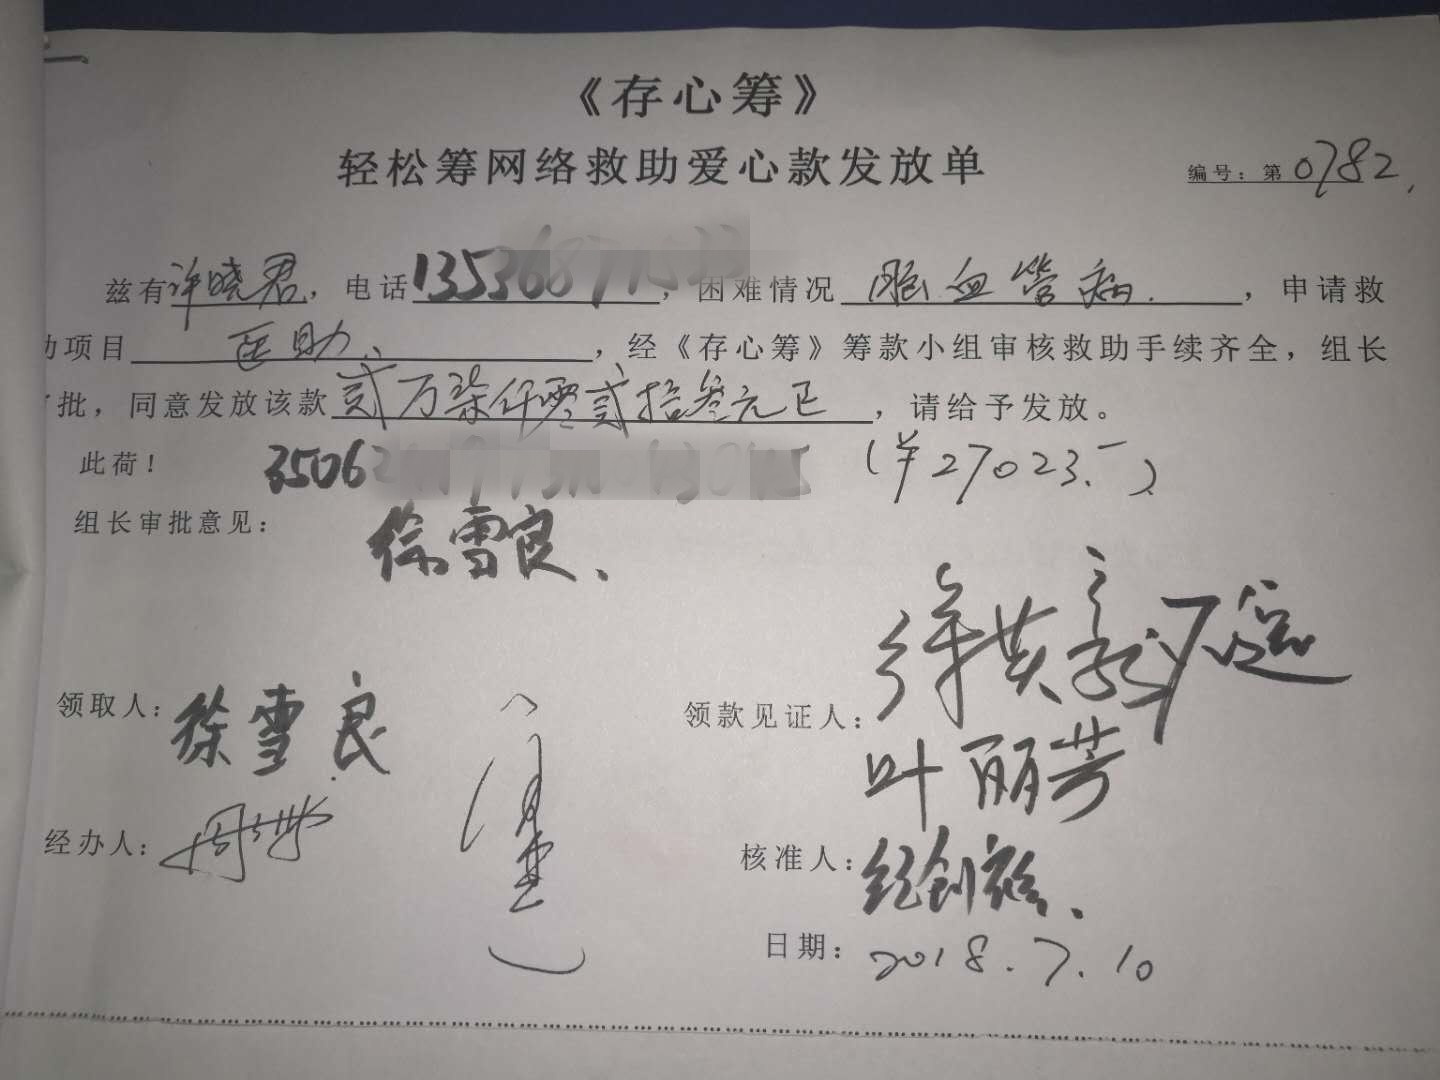 《存心筹》
轻松筹网络救助爱心款发放单
编号：第0782
兹有许晓君，电话1353687，困难情况脑血管病，申请救
助项目医助，经《存心筹》筹款小组审核救助手续齐全，组长
批，同意发放该款贰万柒仟零贰拾叁元正，请给予发放。
此荷！ 3506 (￥27023.一)
组长审批意见：徐雪良
领取人：徐雪良
领款见证人：徐
叶丽芳
经办人：周
核准人：
日期：2018.7.10